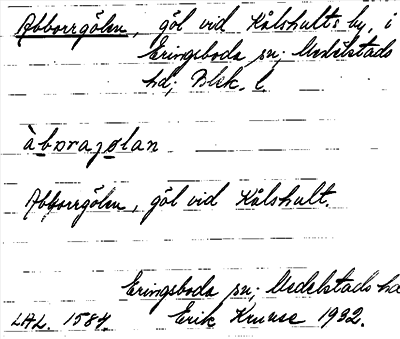 Abborrgölen, göl vid Kålshults by, i
Eringsboda sn; Medelstads
hd; Blek. l.
àbɒraȷølan
Abborrgölen, göl vid Kålshult.
Eringsboda sn; Medelstads hd
LAL. 1584. Erik Kruuse 1932.